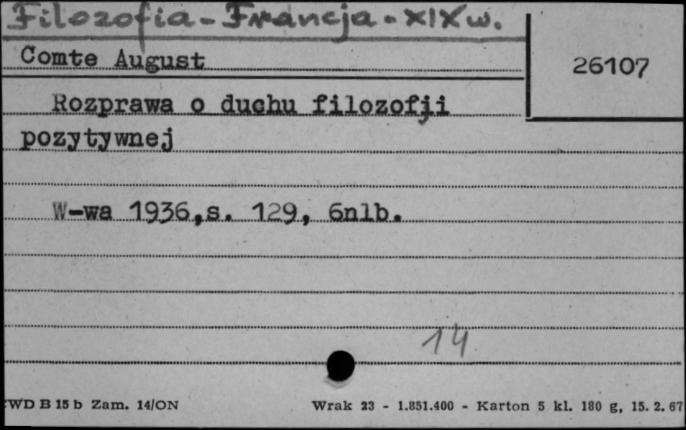 Filozofia - Francja - XIX w.
Comte August
26107
Rozprawa o duchu filozofji
pozytywnej
W-wa 1936,s. 129, 6nlb.
14
WD B 15 b Zam. 14/ON
Wrak 23 - 1.851.400 - Karton 5 kl. 180 g, 15. 2. 67